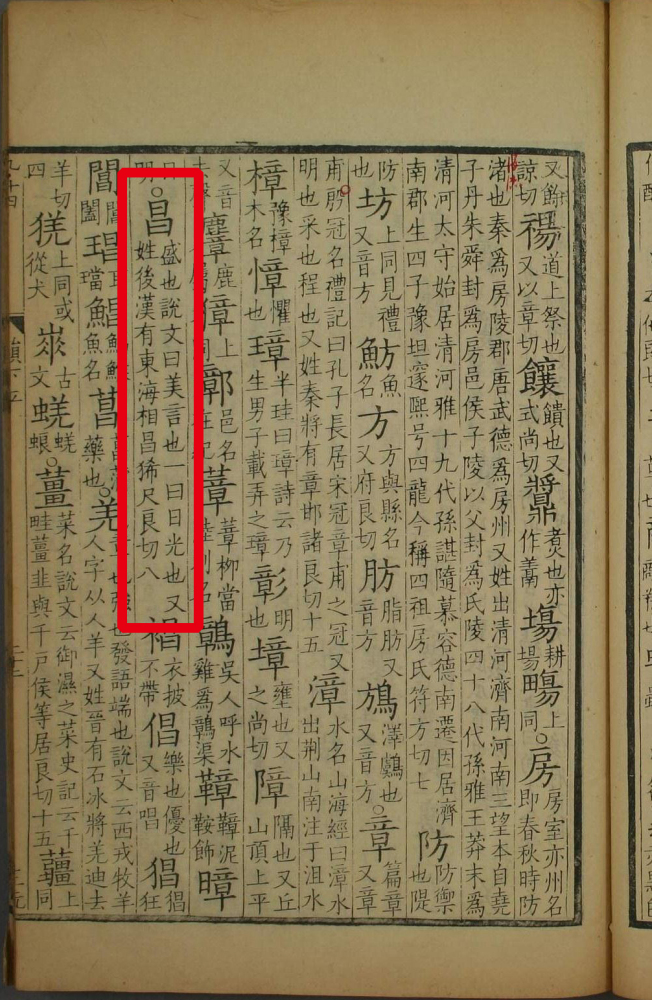 又餘諒切 禓 道上祭也又以章切 饟 饋也又式尚切 煑也亦作鬺 塲 耕場 畼 上同 ○房 房室亦州名即春秋時防
渚也秦為房陵郡唐武德為房州又姓出清河濟南河南三望本自堯子丹朱舜封為房邑侯子陵以父封為氏陵四十八代孫雅王莽末為
清河太守始居清河雅十九代孫諶隨慕容德南遷因居濟南郡生四子豫坦邃熈号四龍今稱四祖房氏符方切七 防 防禦也隄
防也 坊 上同見禮又音方 魴 魚名 方 方與縣名又府良切 肪 脂肪又音方 鴋 澤鸆也又音方 ○章 篇章又章
甫殷冠名禮記曰孔子長居宋冠章甫之冠又明也采也程也又姓秦將有章邯諸良切十五 漳 水名山海經曰漳水出荆山南注于沮水
樟 豫樟木名 慞 懼也 璋 半珪曰璋詩云乃生男子載弄之璋 彰 明也 墇 壅也又之尚切 障 隔也又丘山頂上平
又音去聲 麞 鹿屬 獐 上同 鄣 邑名在紀 蔁 蔁柳當陸別名 吳人呼水雞為 渠 泥鞍飾 暲
明 ○昌 盛也說文曰美言也一曰日光也又姓後漢有東海相昌狶尺良切八 裮 衣披不帶 倡 樂也優也又音唱 猖 猖狂
閶 閶闔 琩 耳璫 鯧 魚名 菖 菖蒲藥也 ○羌 章也強也發語端也說文云西戎牧羊人字从人羊又姓晉有石冰將羌迪去
羊切四 猐 上同或從犬 古文 蜣 蜣蜋 ○薑 菜名說文云御濕之菜史記云千畦薑韭與千戶侯等居良切十五 上同